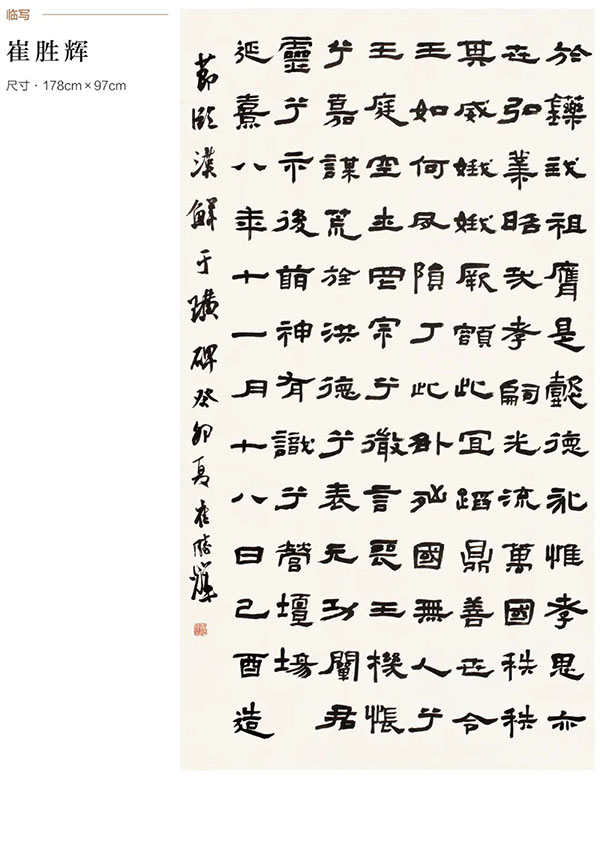 临写
崔胜辉
尺寸·178cm×97cm
於鑠我祖膺是懿德永惟孝思亦
世弘業昭哉孝嗣光流萬國秩秩
其威娥娥厥額此宜蹈鼎善世令
王如何夙隕丁此卦凶國無人兮
王庭空士罔宗兮微言喪王機悵
兮嘉謀荒旌洪德兮表元功闡君
靈兮示後萌神有識兮營壇場
延熹八年十一月十八日己酉造
節臨漢鮮于璜碑癸卯夏崔勝輝